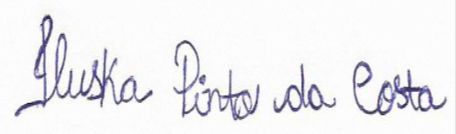 Iluska Pinto da Costa